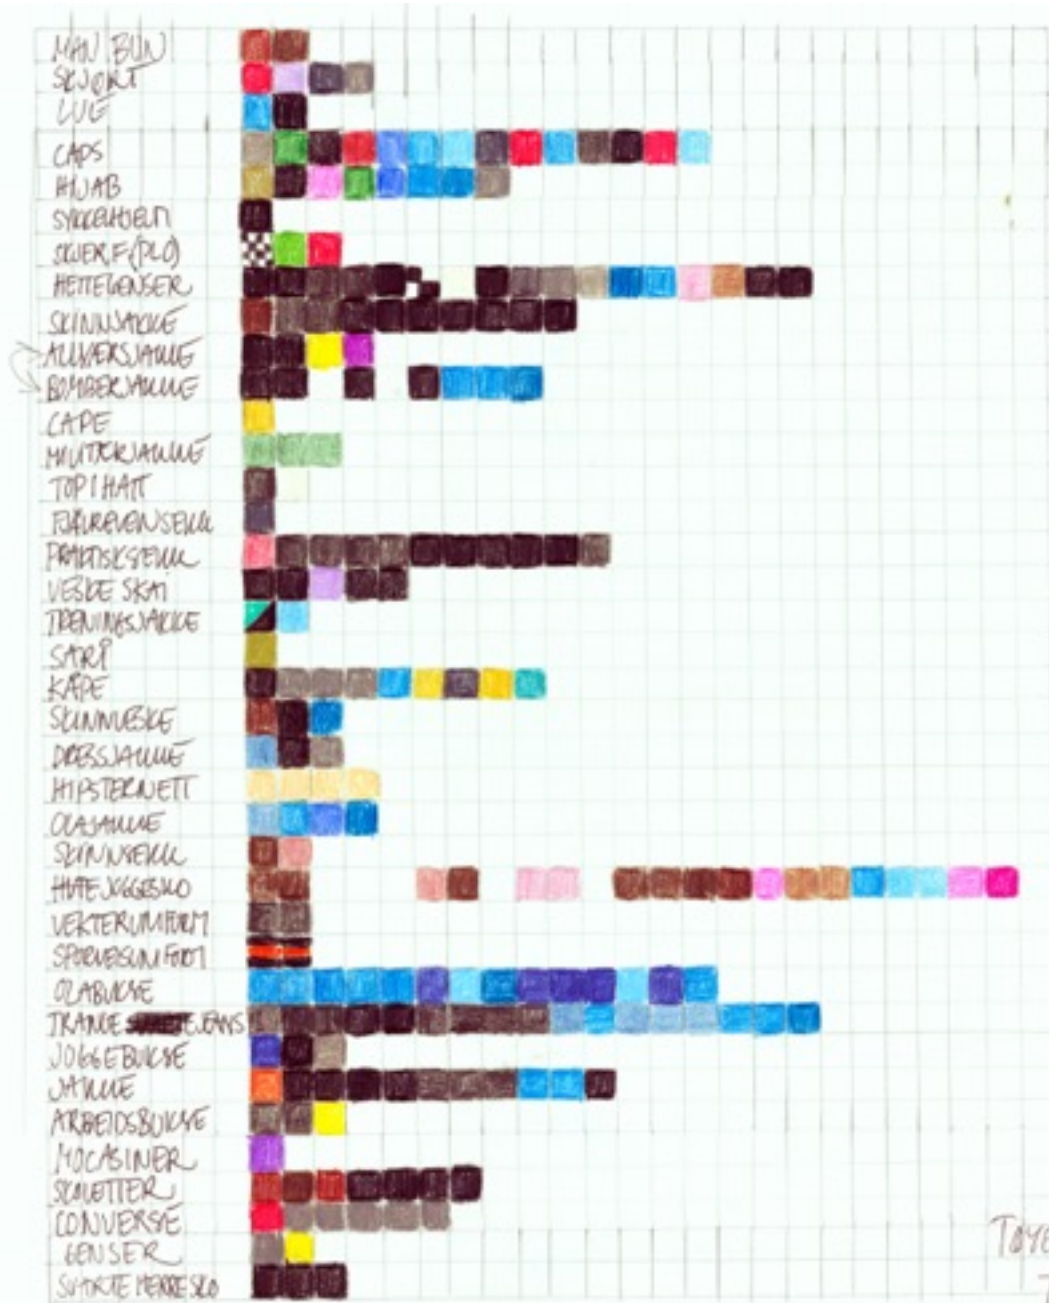 MAN BUN
SKJØRT
LUE
CAPS
HIJAB
SYKKELHJELM
SKJERF (PLO)
HETTEGENSER
SKINNJAKKE
ALLVÆRSJAKKE
BOMBERJAKKE
CAPE
MILITÆRJAKKE
TOPI HATT
FJÄLRÄVENSEKK
PRAKTISK SEKK
VESKE SKAI
TRENINGSJAKKE
SARI
KÅPE
SKINNVESKE
DRESSJAKKE
HIPSTERNETT
OLAJAKKE
SKINNSEKK
HVITE JOGGESKO
VEKTERUNIFORM
SPORVEISUNIFORM
OLABUKSE
TRANGE JEANS
JOGGEBUKSE
JAKKE
ARBEIDSBUKSE
MOCASINER
SKOLETTER
CONVERSE
GENSER
SVARTE HERRESKO